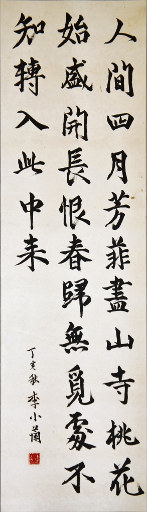 人間四月芳菲盡山寺桃花
始盛開長恨春歸無覓處不
知轉入此中来
丁亥秋 李小